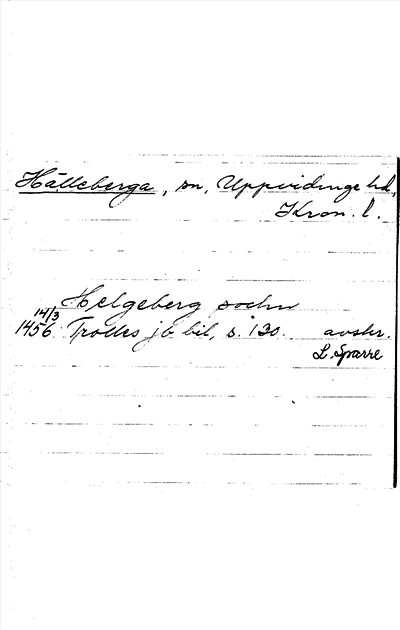 Hälleberga, sn, Uppvidinge hd,
Kron. l.
Helgeberg sochn
14/3
1456 Trolles jb bil, s. 130. avskr.
L. Sparre